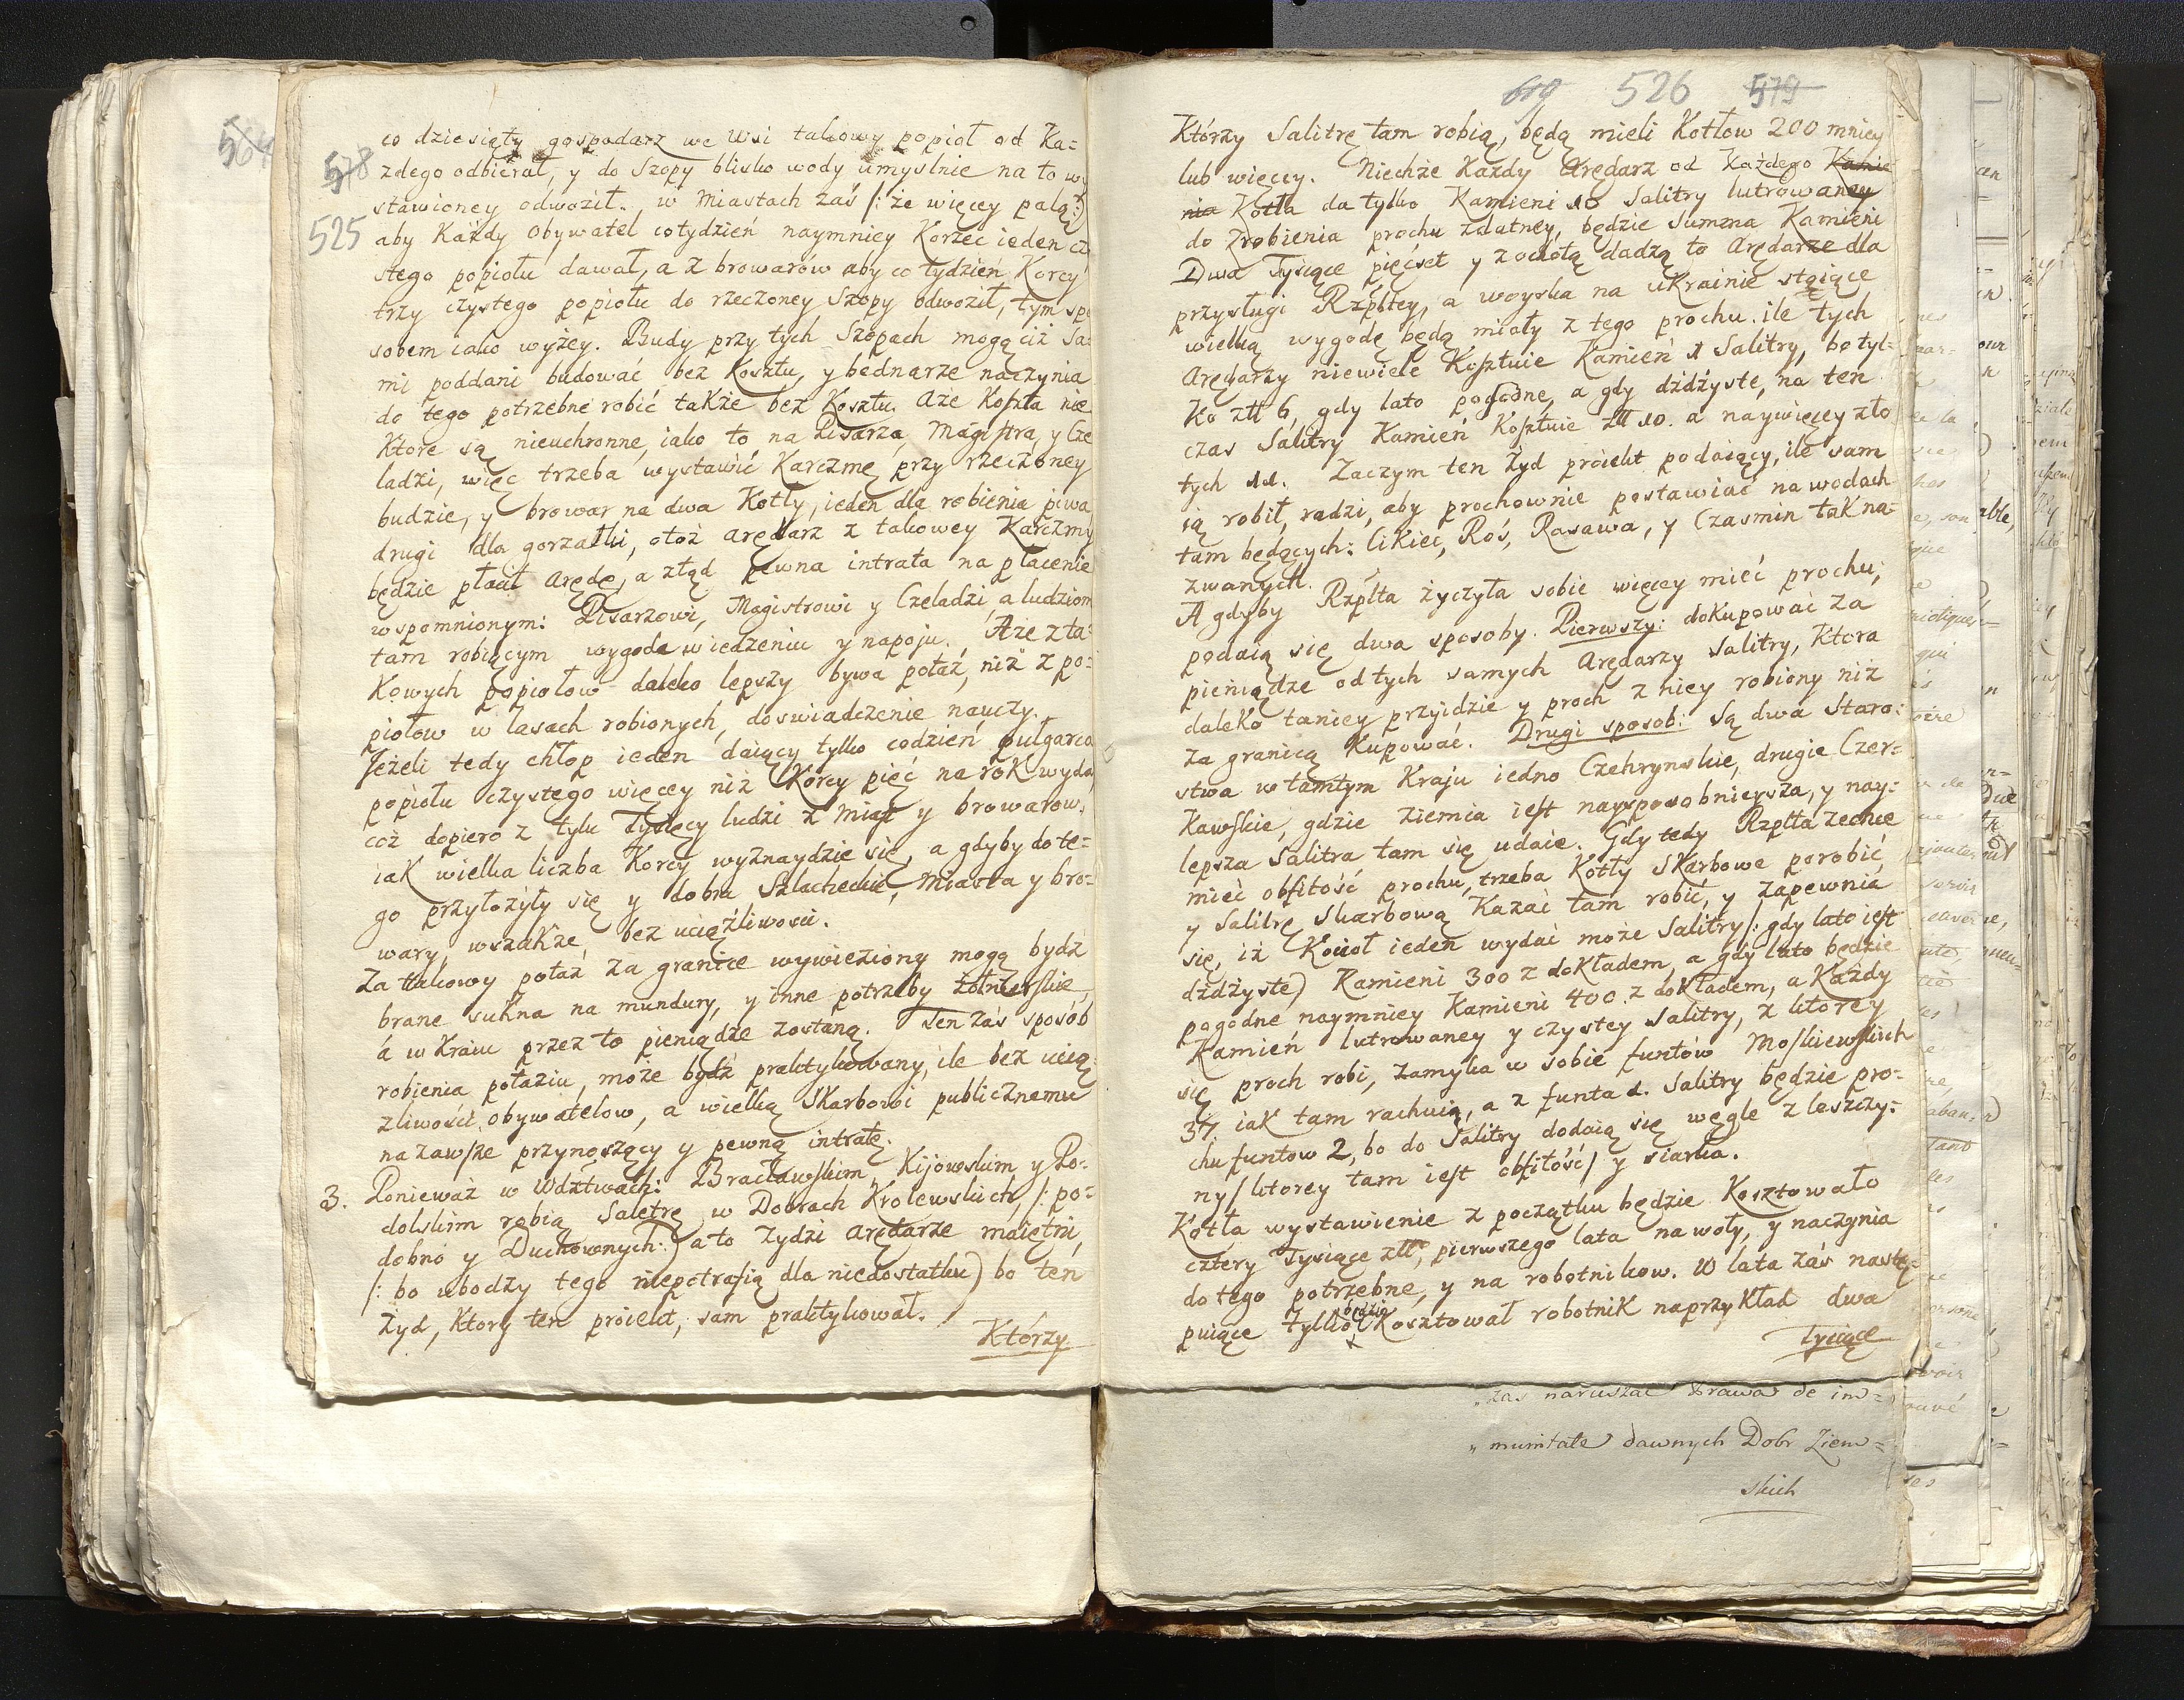 564
578
525
co dziesięty gospodarz we Wsi takowy popioł od Ka=
zdego odbierał, y do Szopy blisko wody umyslnie na to w
stawioney odwoził. w Miastach zaś /: że więcey palą :)
aby Każdy Obywatel co tydzień naymniey Korzec ieden cz
stego popiołu dawał, a z browarów aby co tydzień Korcy
trzy czystego popiołu do rzeczoney Szopy odwoził, tym spo
sobem iako wyżey. Budy przy tych Szopach mogą ciż Sa=
mi poddani budować bez Kosztu, y bednarze naczynia
do tego potrzebne robić także bez Kosztu. Aże Koszta nie
Ktore są nieuchronne, iako to na Pisarza, Magistra, y Cze
ladzi, więc trzeba wystawić Karczmę przy rzeczoney
budzie, y browar na dwa Kotły, ieden dla robienia piwa
drugi dla gorzałki, otoż Arędarz z takowey Karczmy
będzie płacił Arędę, a ztąd pewna intrata na płacenie
wspomnionym: Pisarzowi, Magistrowi y Czeladzi, a ludziom
tam robiącym wygoda w iedzeniu y napoju. Aże z ta=
Kowych popiołow daleko lepszy bywa potaż, niż z po=
piołow w lasach robionych, doswiadczenie nauczy.
Jeżeli tedy chłop ieden daiący tylko codzień pułgarca
popiołu czystego więcey niż Korcy pięć na roK wyda,
coż dopiero z tylu Tysięcy ludzi z Miast y browarow,
iaK wielka liczba Korcy wyznaydzie się, a gdyby do te=
go przyłożyły się y dobra Szlacheckie, Miasta y bro=
wary, wszakże bez uciążliwosci.
Za takowy potaż za granice wywieziony mogą bydź
brane sukna na mundury, y inne potrzeby żołnierskie,
a w Kraiu przez to pieniądze zostaną. Ten zaś sposób
robienia potaziu, może bydź praktykowany, ile bez ucią=
zliwości obywatelow, a wielką Skarbowi publicznemu
na zawsze przynoszący y pewną intratę.
3. Ponieważ w Wdztwach: Bracławskim, Kijowskim y Po=
dolskim robią Saletrę w Dobrach Krolewskich, /: po=
dobno y Duchownych:) a to Żydzi Arędarze maiętni,
/: bo ubodzy tego niepotrafią dla niedostatku) bo ten
Żyd, Ktory ten proiekt, sam praktykował.
Którzy
526 579
Którzy Salitrę tam robią, będą mieli Kotłow 200 mniey
lub więcey. Niechże Każdy Arędarz od Każdego Kamie
nia Kotła da tylko Kamieni 10 Salitry lutrowaney
do Zrobienia prochu zdatney, będzie Summa Kamieni
Dwa Tysiące pięćset y z ochotą dadzą to Arędarze dla
przysługi Rzpltey, a woyska na Ukrainie stoiące
wielką wygodę będą miały z tego prochu. ile tych
Arędarzy niewiele Kosztuie Kamień 1 Salitry, bo tyl=
Ko złł 6, gdy lato pogodne, a gdy dżdżyste, na ten
czas Salitry Kamień Kosztuie złł 10. a naywięcey zło
tych 11. Zaczym ten Żyd proiekt podaiący, ile sam
ią robił, radzi, aby prochownie postawiać na wodach
tam będących: Cikiec, Roś, Rasawa, y Czasmin tak na=
zwanych.
A gdyby Rzplta życzyła sobie więcey mieć prochu;
podaią się dwa sposoby. Pierwszy: dokupować za
pieniądze od tych samych Arędarzy Salitry, Ktora
daleko taniey przyidzie y proch z niey robiony niż
za granicą Kupować. Drugi sposob: Są dwa Staro=
stwa w tamtym Kraju iedno Czehrynskie, drugie Czer=
Kawskie, gdzie ziemia iest naysposobnieysza, y nay=
lepsza Salitra tam się udaie. Gdy tedy Rzplta zechce
mieć obfitość prochu, trzeba Kotły Skarbowe porobić,
y Salitrę Skarbową Kazać tam robić, y zapewnia
się, iż Kocioł ieden wydać może Salitry /: gdy lato iest
dżdżyste) Kamieni 300 z doKładem, a gdy lato będzie
pogodne naymniey Kamieni 400. z doKładem, a Każdy
Kamień lutrowaney y czystey Salitry, z Ktorey
się proch robi, zamyka w sobie funtów Moskiewskich
34 iak tam rachuią, a z funta 1. Salitry będzie pro=
chu funtow 2, bo do Salitry dodaią się węgle z leszczy=
ny /Ktorey tam iest obfitość/ y siarka.
Kotła wystawienie z początku będzie Kosztowało
cztery Tysiące złł, pierwszego lata na woły, y naczynia
do tego potrzebne, y na robotnikow. W lata zaś nastę=
puiące tylko będzie Kosztował robotnik naprzykład dwa
Tysiące
„zas naruszać Prawa de im=
„munitate dawnych Dobr Ziem=
skich